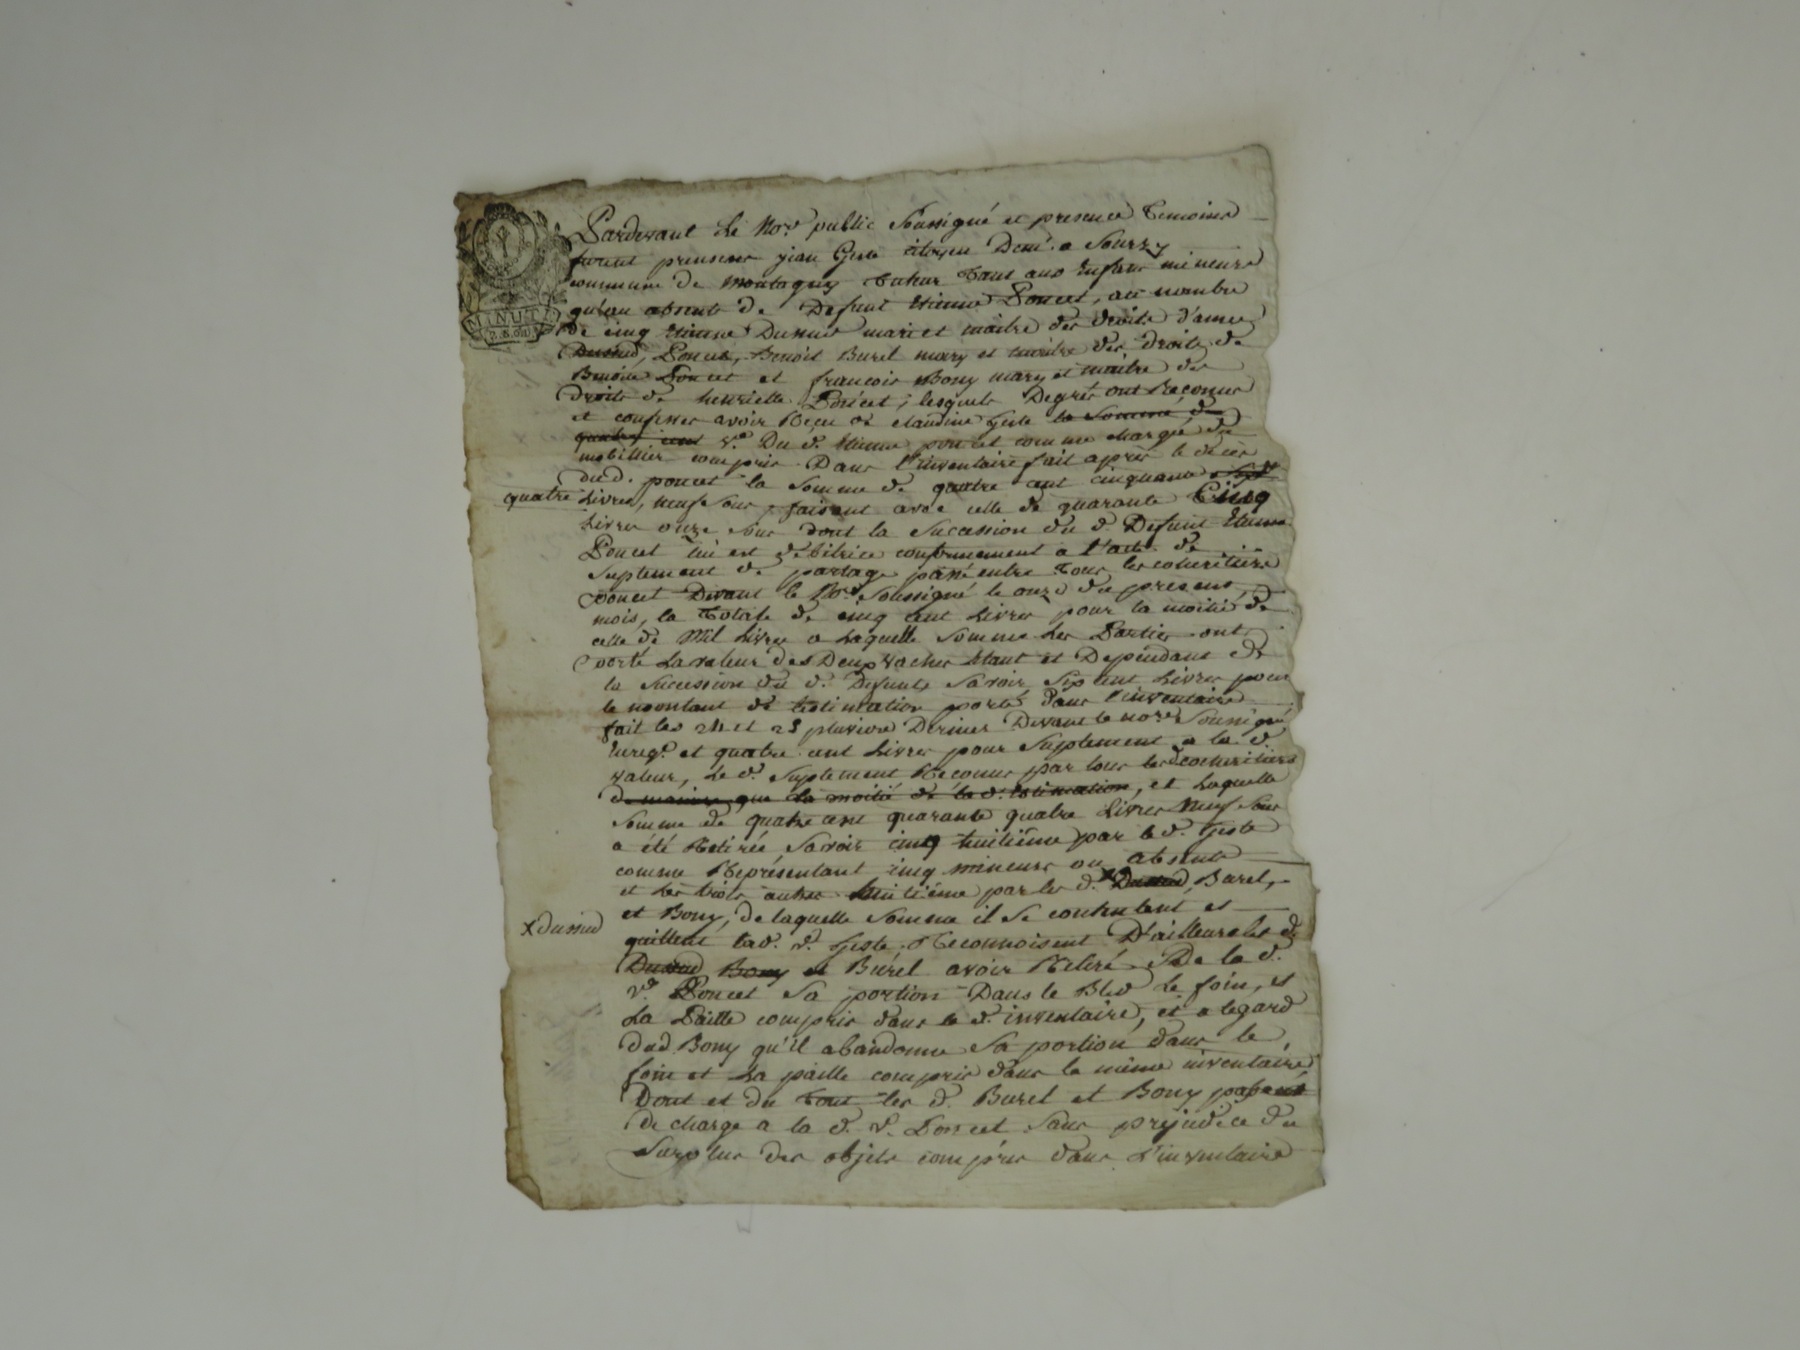 Pardevant Le No.re public Soussigné et presence Temoins
furent presents jean Geste citoyen Dem.t a Sourzy
commune de Montagny Tuteur Tant aux Enfans mineurs
qu'au absents de Defunt Etienne Poncet, au nombre
MINUTE
de cinq Etienne Dussud mari et maitre des droits d'anne
Dussud, Poncet, Benoit Burel mary et maitre des droits de
Benoite Poncet et françois Bony mary et maitre des
droits de henriette Poncet, lesquels Degrés ont Reconnus
et confessés avoir Reçu de claudine Geste la Somme de
quatre cent v.e Du d. Etienne poncet comme chargée du
mobillier compris Dans l'inventaire fait après le décès
dud. poncet la Somme de quatre cent cinquante
quatre Livres, neuf Sous, faisant avec celle de quarante Cinq
Livres onze Sous dont la Sucession du d. Defunt Etienne
Poncet lui est débitrice conformement a l'acte de
Suplement de partage passé entre Tous les coheritiers
poncet Devant le No.re Soussigné le onze du present
mois, la Totale de cinq cent Livres pour la moitié de
celle de Mil Livres a Laquelle Somme Les Parties ont
porté La valeur des Deux vaches Etant et Dépendant de
la Sucession du d. Defunt, Savoir Six cent Livres pour
le montant de l'estimation porté Dans l'inventaire
fait les 24 et 25 pluviose Dernier Devant le no.re Soussigné
Enreg.é et quatre cent Livres pour Suplement a la d.
valeur, Le d. Suplement Reconnu par tous les d coheritiers
de maniere que la moitié de la d. Estimation, et Laquelle
Somme de quatre cent quarante quatre Livres Neuf Sous
a été Retirée Savoir cinq huitième par le d. Geste
comme Représentant cinq mineurs ou absents
et Les trois autres huitième par les d. x Dussud, Burel,
et Bony, de laquelle Somme il Se contentent et
x dussud
quittent lad. v. Geste. Reconnoisent D'ailleurs les d.
Dussud Bony et Burel avoir Retiré De la d.
v.e Poncet Sa portion Dans le Bled Le foin, et
La Paille compris dans le d. inventaire, et a legard
dud. Bony qu'il abandonne Sa portion dans le
foin et La paille compris dans le même inventaire
Dont et du Tout les d. Burel et Bony passent
de charge a la d. v. Poncet Sans prejudice du
Surplus des objets compris dans L'inventaire